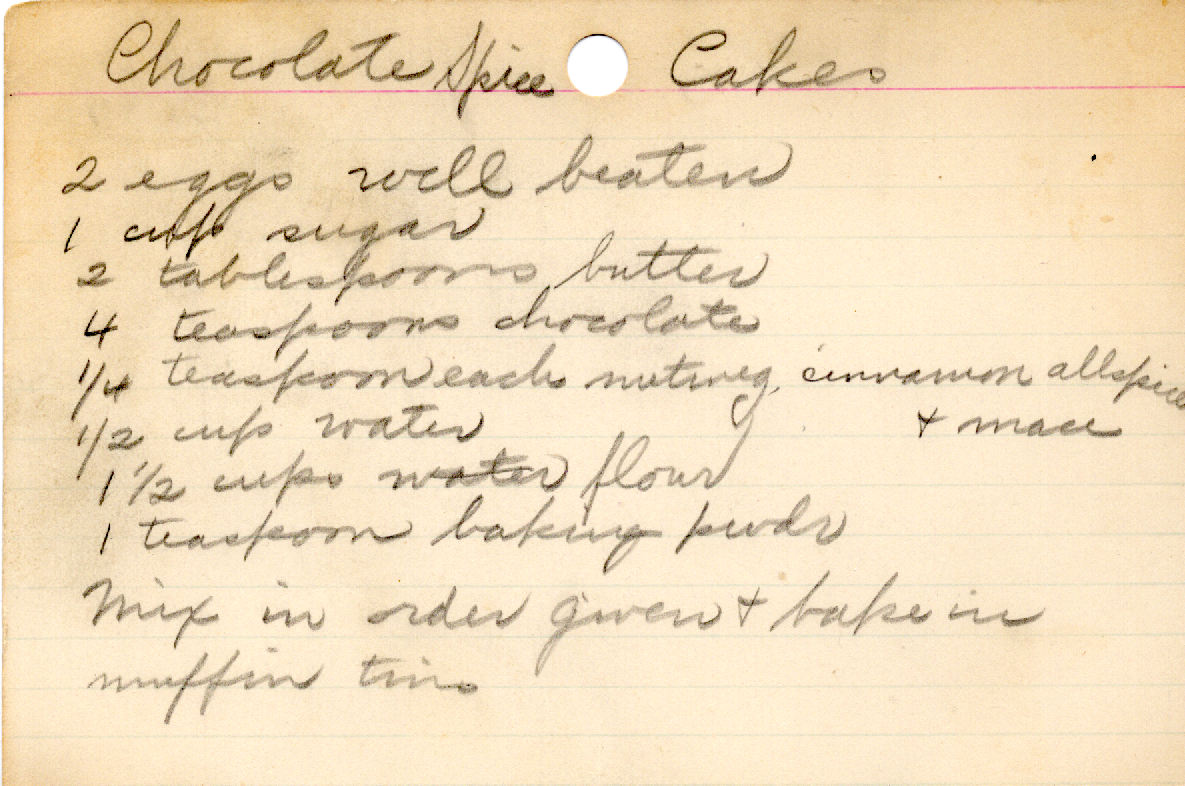 Chocolate Spice Cakes
2 eggs well beaten
1 cup sugar
2 tablespoons butter
4 teaspoons chocolate
1/4 teaspoon each nutmeg, cinnamon allspice
& mace
1/2 cup water
1 1/2 cups water flour
1 teaspoon baking pwdr
Mix in order given & bake in
muffin tins